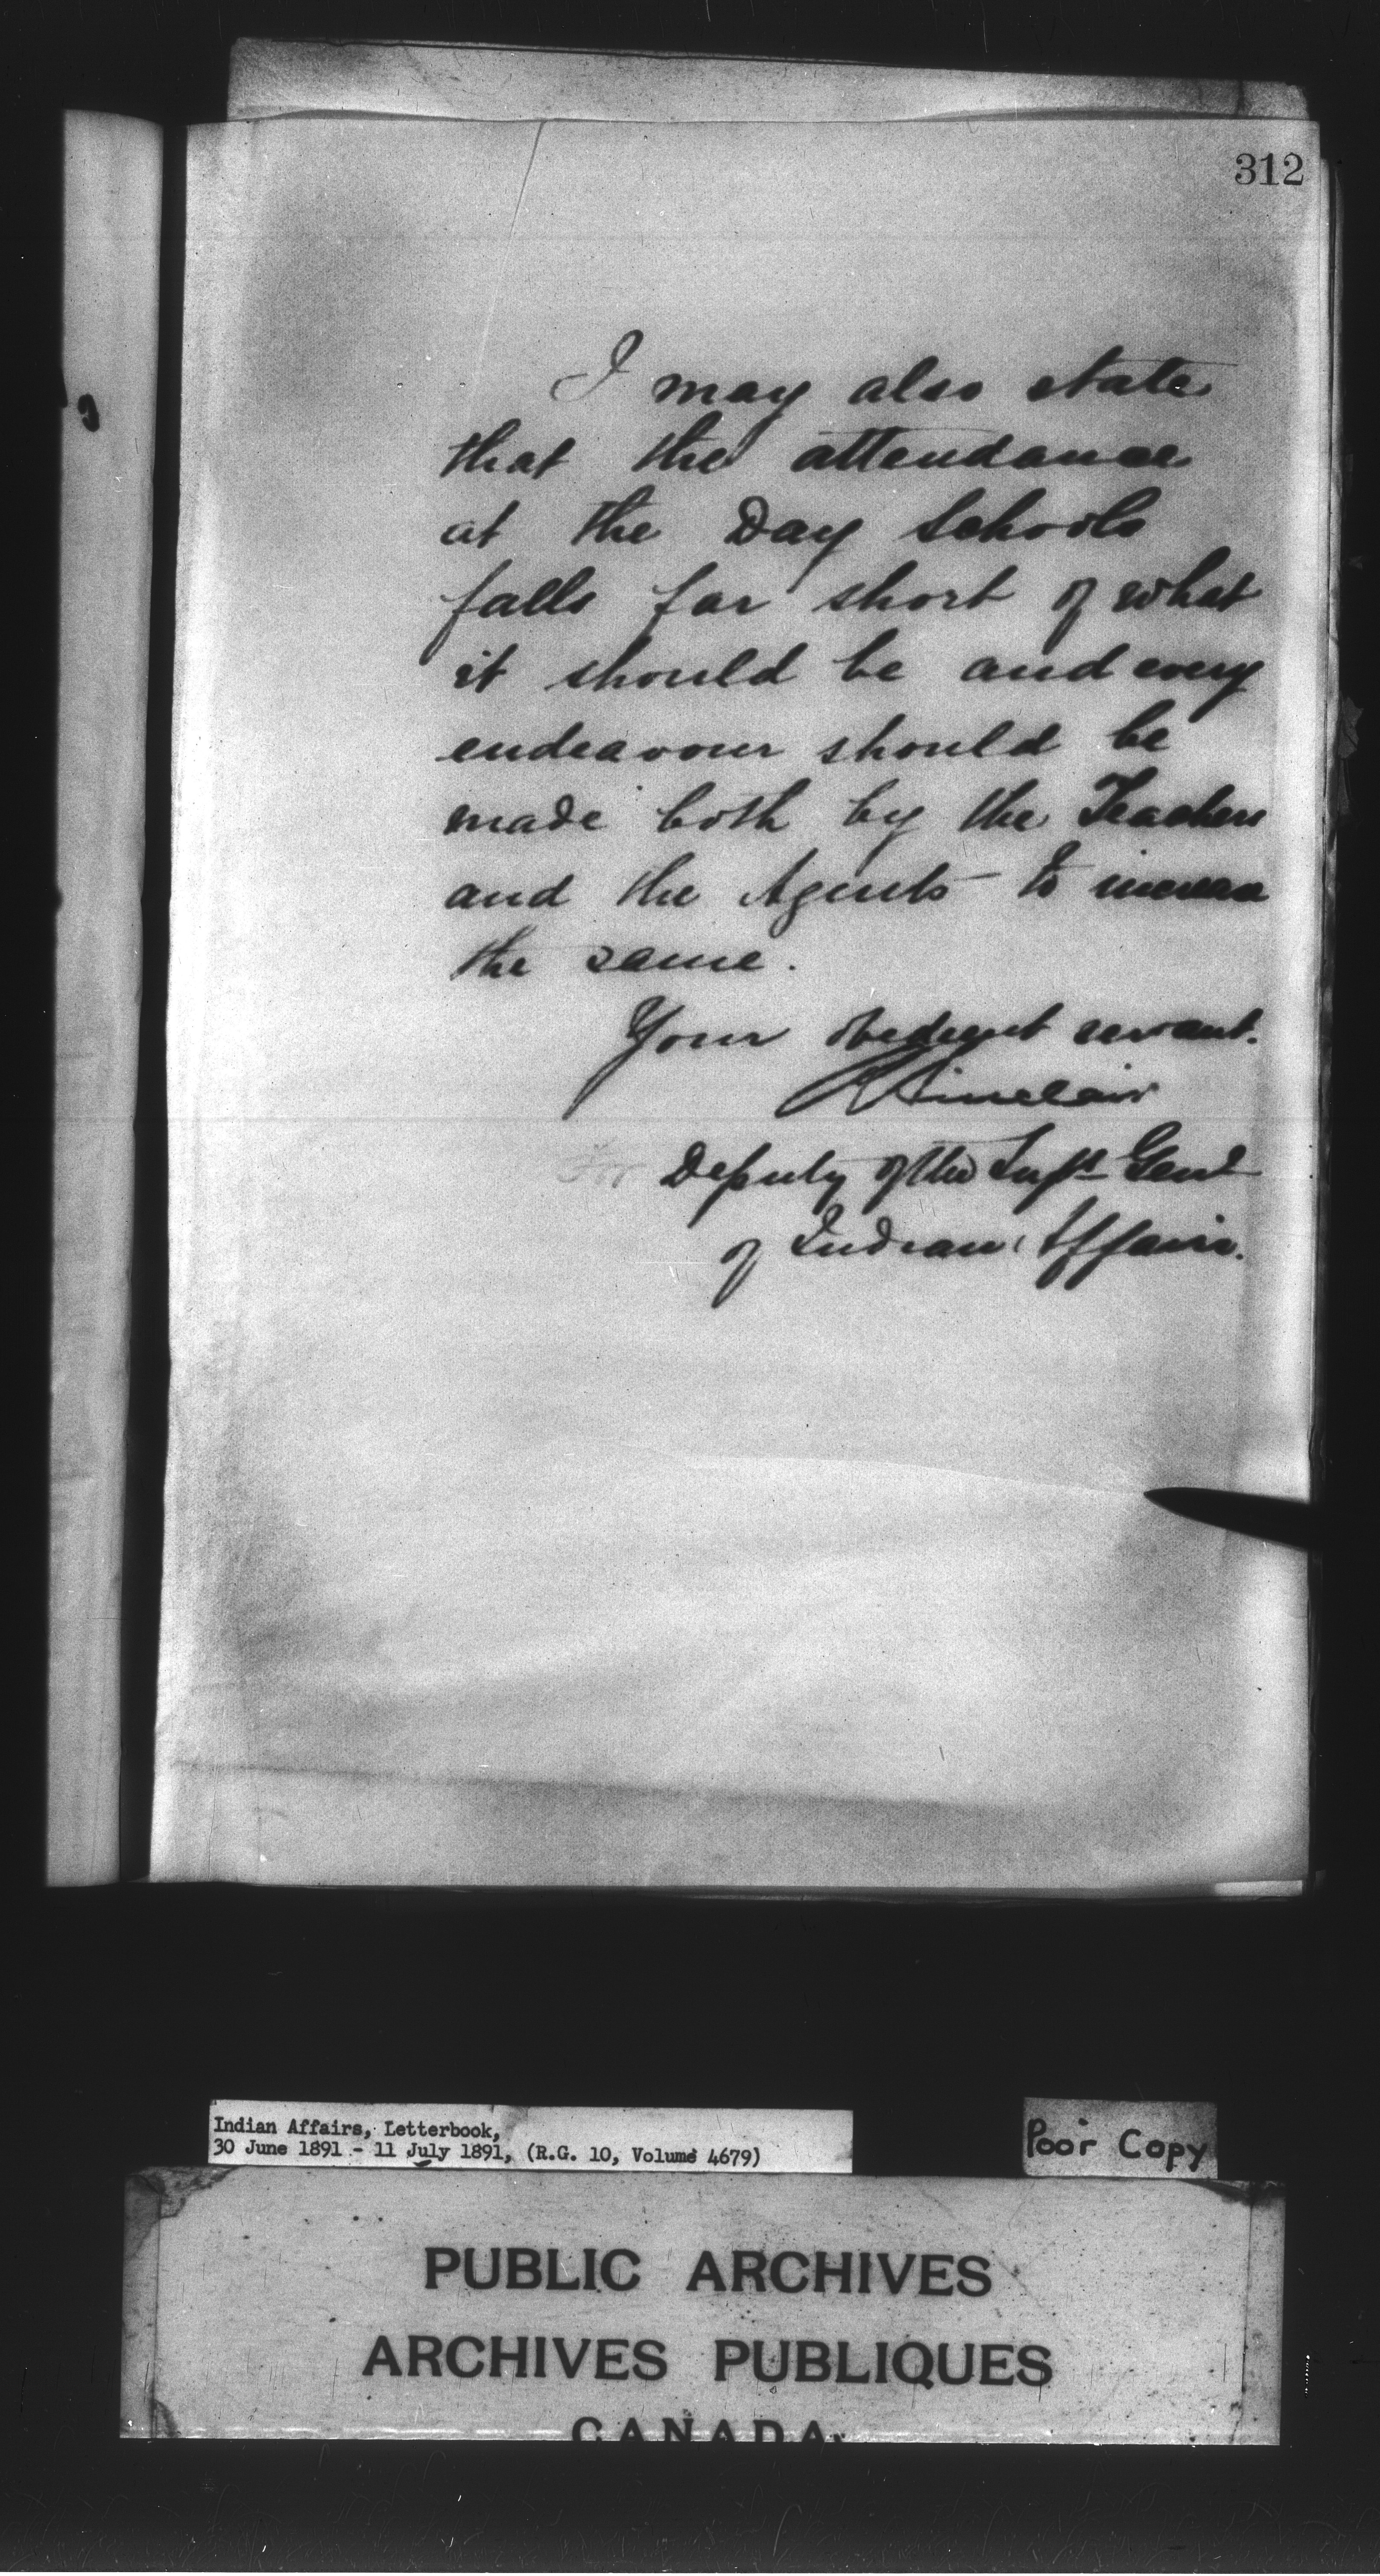 312
I may also state
that the attendance
at the Day Schools
falls far short of what
it should be and every
endeavour should be
made both by the Teachers
and the Agents to increase
the same.
Your obedient servant.
Sinclair
For Deputy of the Supt Genl
of Indian Affairs.
Indian Affairs, Letterbook,
30 June 1891 - 11 July 1891, (R.G. 10, Volume 4679)
Poor Copy
PUBLIC ARCHIVES
ARCHIVES PUBLIQUES
CANADA